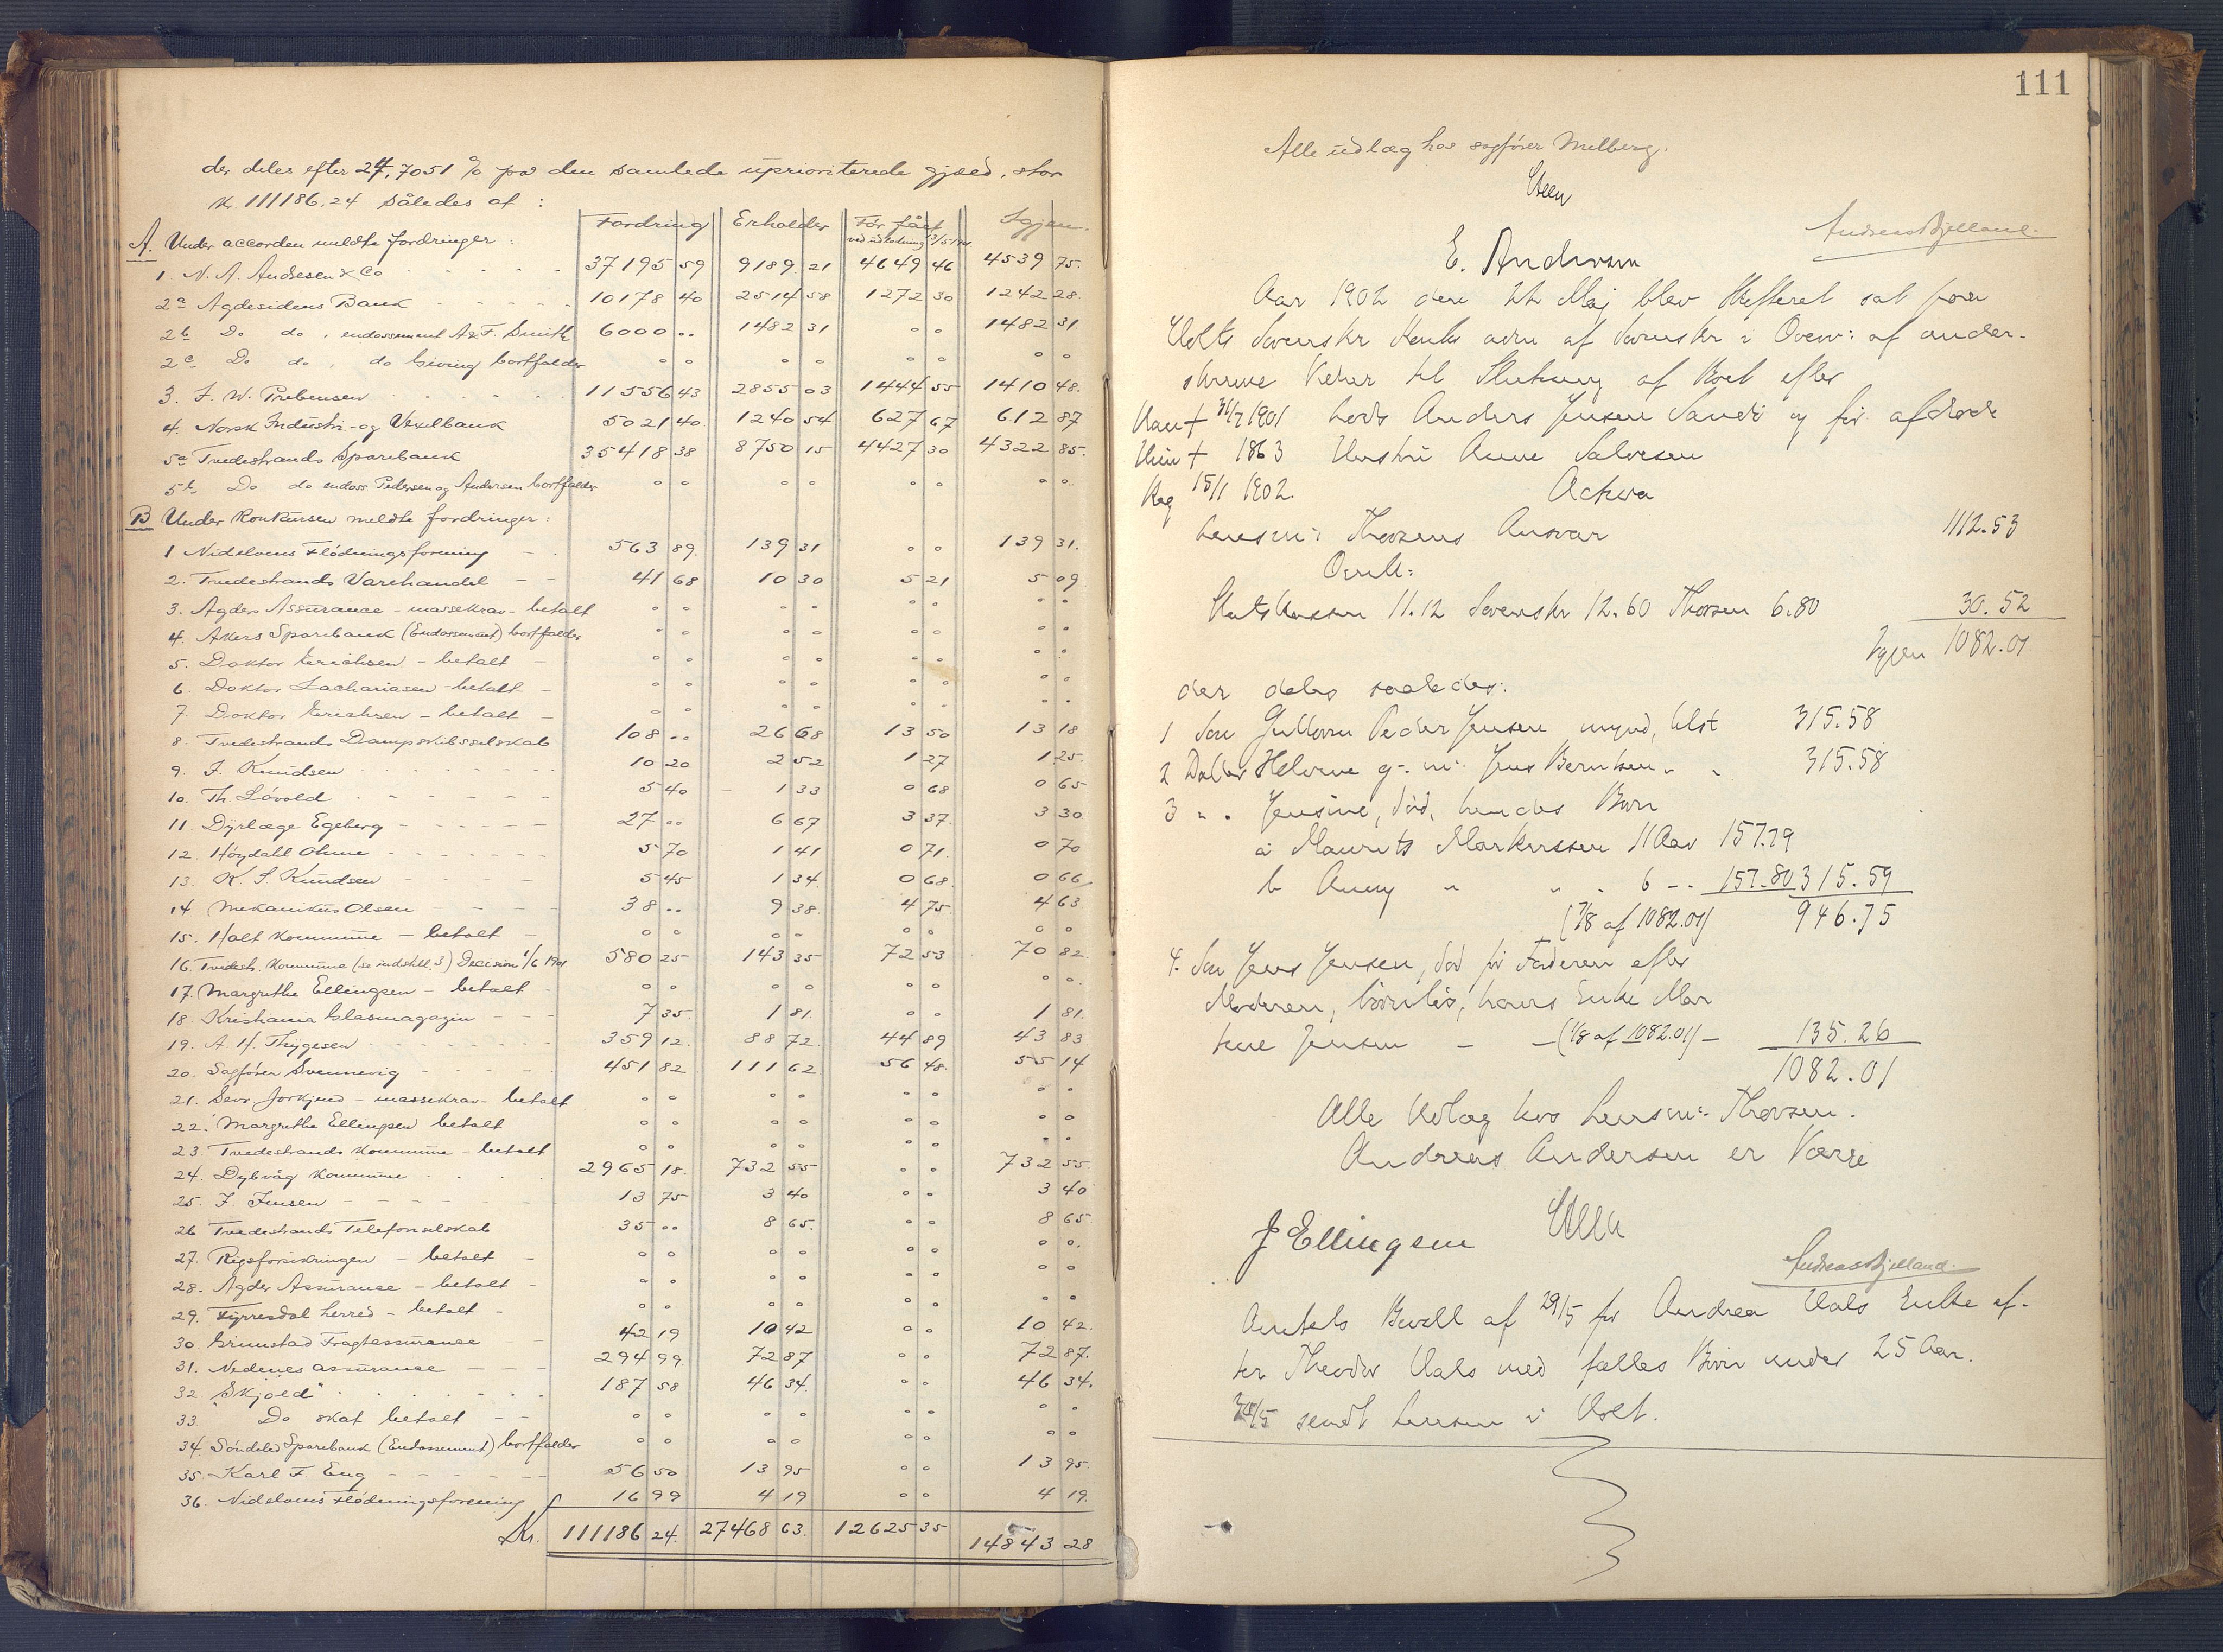 der deles efter 24,7051 % paa den samlede uprioriterede gjæld, stor
Kr. 111186.24 således at :
Fordring Erholder Før fået ved udlodning 13/5 1901 Igjen.
A. Under accorden meldte fordringer :
1. N. A. Andresen & Co - - - - - 37195 59 9189 21 4649 46 4539 75.
2a Agdesidens Bank - - - - 10178 40 2514 58 1272 30 1242 28.
2b Do do, endossement A & F. Smith 6000 " 1482 31 " " 1482 31
2c Do do, do Giving bortfalder " " " " " " " "
3. J. W. Prebensen - - - - - 11556 43 2855 03 1444 55 1410 48.
4. Norsk Industri- og Vexelbank 5021 40. 1240 54 627 67 612 87
5a Tvedestrands Sparebank 35418 38 8750 15 4427 30 4322 85.
5b Do do endoss. Pedersen og Andersen bortfalder " " " " " " " "
B Under Konkursen meldte fordringer :
1 Nidelvens Flödningsforening - 563 89. 139 31 " " 139 31.
2. Tvedestrands Varehandel - - 41 68 10 30 5 21 5 09
3. Agders Assurance - massekrav - betalt " " " " " " " "
4. Akers Sparebank (Endossement) bortfalder " " " " " " " "
5. Doktor Erichsen - betalt - " " " " " " " "
6. Doktor Zachariasen - betalt - " " " " " " " "
7. Doktor Erichsen - betalt - " " " " " " " "
8. Tvedestrands Dampskibsselskab 108 " 26 68 13 50 13 18
9. J. Knudsen - - - - - 10 20 2 52 1 27 1 25.
10. Th. Lövold - - - - - 5 40 - 1 33 0 68 0 65
11. Dyrlæge Egeberg - - - - - 27 " 6 67 3 37. 3 30
12. Höydahl Ohme - - - - - 5 70 1 41 0 71. 0 70
13. K. S. Knudsen - - - - 5 45 1 34. 0 68. 0 66
14. Mekanikus Olsen - - - - 38 " 9 38. 4 75. 4 63
15. Holt Kommune - betalt - " " " " " " " "
16. Tvedestr. Kommune (se indstill. 3) Decision 1/6 1901 580 25 143 35 72 53 70 82.
17. Margrethe Ellingsen - betalt - " " " " " " " "
18. Kristiania Glasmagazin - - - 7 35. 1 81. " " 1 81.
19. A. H. Thygesen - - - - - 359 12. 88 72. 44 89 43 83
20. Sagfører Svennevig - - - - 451 82 111 62 56 48. 55 14
21. Sevr. Jorkjend - massekrav - betalt " " " " " " " "
22. Margrethe Ellingsen betalt " " " " " " " "
23. Tvedestrands Kommune - betalt " " " " " " " "
24. Dybvåg Kommune - - - - 2965 18. 732 55 " " 732 55.
25. J. Jensen - - - - - 13 75 3 40 " " 3 40
26 Tvedestrands Telefonselskab 35 " 8 65. " " 8 65
27. Rigsforsikringen - betalt - " " " " " " " "
28. Agder Assurance - betalt - " " " " " " " "
29. Fyrresdal herred - betalt - " " " " " " " "
30. Grimstad Fragtassurance - - 42 19 10 42 " " 10 42.
31. Nedenes assurance - - - 294 99. 72 87 " " 72 87.
32. "Skjold" - - - - - 187 58 46 34. " " 46 34.
33. Do skat betalt - - " " " " " " " "
34 Söndeled Sparebank (Endossement) bortfalder " " " " " " " "
35. Karl F. Eng - - - - - 56 50 13 95 " " 13 95.
36. Nidelvens Flödningsforening 16 99 4 19 " " 4 19.
Kr. 111186 24. 27468 63. 12625 35 14843 28
111
Alle udlæg hos sagfører Milberg.
Andreas Bjelland.
E. Andersen
Aar 1902 den Maj blev Skifteret sat paa
Holts Sorenskr Kontor af Sorenskr i Overv: af under-
skrevne Vidner til Slutning af Boet efter
Man † 31/7 1901 Anders Jensen Sandö og før afdøde
Hun † 1863 Hustru Anne Salvesen
Reg 15/1 1902. Activa
Lensm: Thorsens Ansvar 1112.53
Statskassen 11.12 Sorenskr 12.60 Thorsen 6.80 30.52
Igjen 1082.01
der deles saaledes:
1 Søn Guttorm Peder Jensen mynd, 315.58
2 Datter Helvine g. m: Jens Berntsen " " 315.58
3 " " Jensine, död, hendes Børn
a Maurits Markussen 11 Aar 157.79
b Anny " " " 6 -" 157.80 315.59
(7/8 af 1082.01) 946.75
4. Søn Jens Jensen, død før Faderen efter
Moderen, barnløs, hans Enke Mar
tine Jensen - - (1/8 af 1082.01) - 135.26
1082.01
Alle Udlæg hos Lensm: Thorsen.
Andreas Andersen er Værge
J Ellingsen
Andreas Bjelland.
Amtets Bevill af 29/5 for Andrea Enke ef-
ter Theodor med fælles Børn under 25 Aar.
30/5 sendt Lensm i Holt.